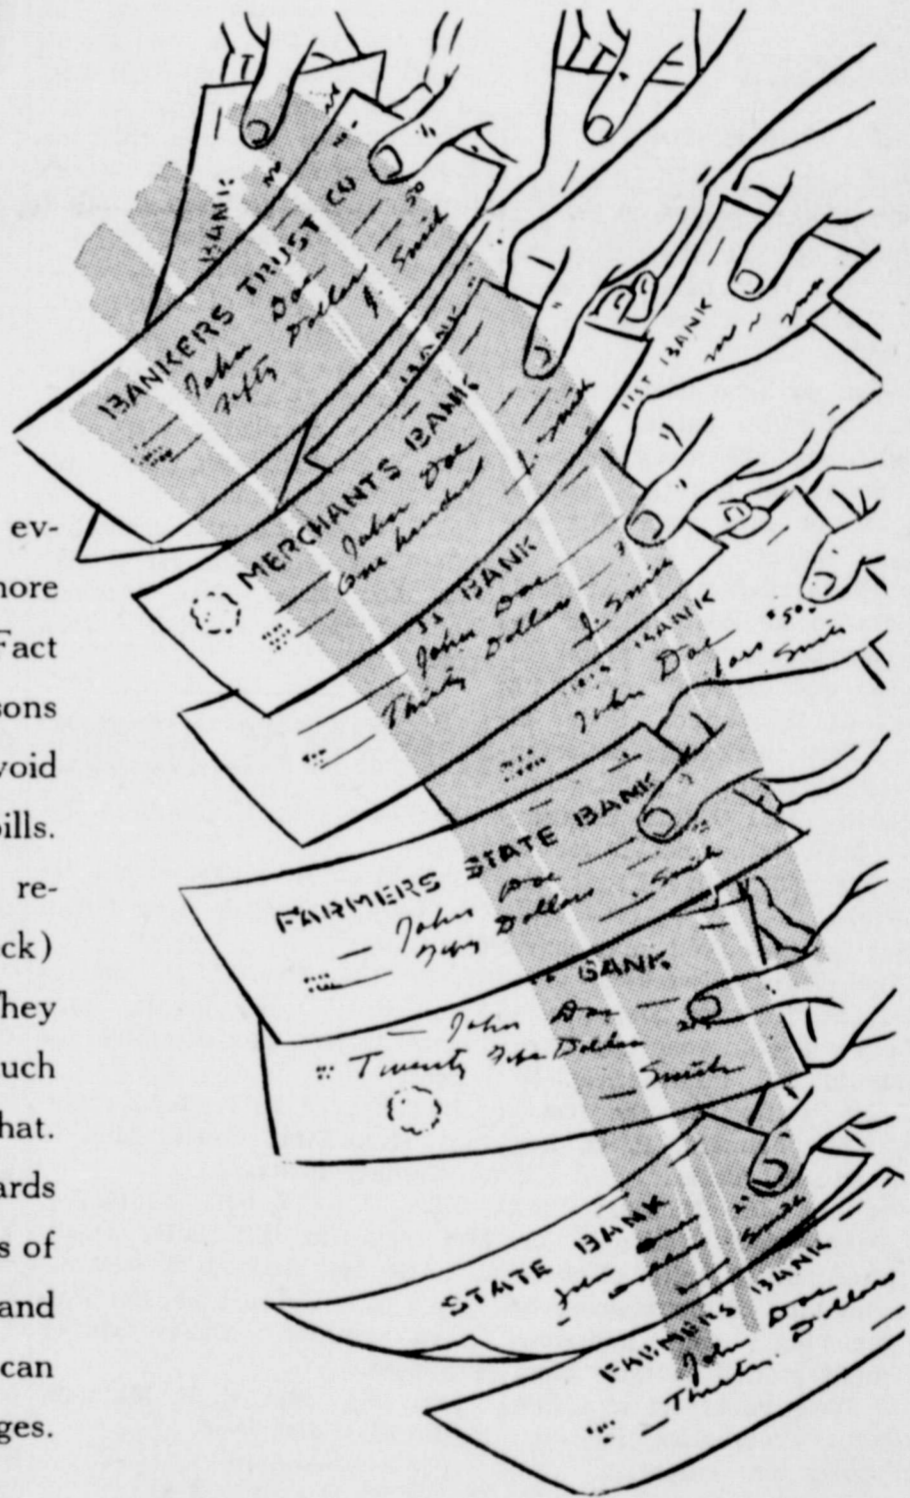 ev-
more
Fact
sons
void
bills.
re-
ck)
They
uch
hat.
ards
s of
and
can
ges.
BANK
BANKERS TRUST CO
50
John Doe
Fifty Dollars
J Smith
BANK
MERCHANTS BANK
John Doe
One hundred
J. Smith
1ST BANK
BANK
John Doe
Thirty Dollars
J. Smith
BANK
John Doe "50"
Smith
FARMERS STATE BANK
John Doe
Fifty Dollars
J. Smith
BANK
John Doe
Twenty Five Dollars
Smith
STATE BANK
John
Smith
FARMERS BANK
John Doe
Thirty Dollars